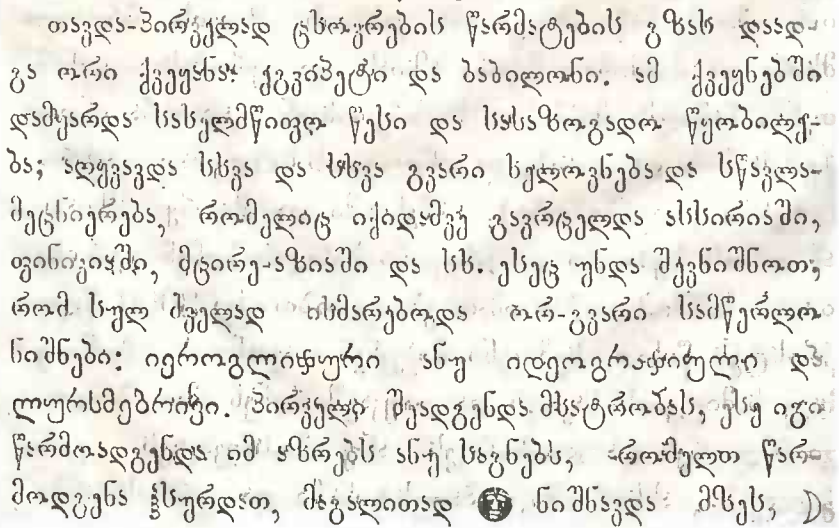 თავდა-პირველად ცხოვრების წარმატების გზას დაად-
გა ორი ქვეყანა: ეგვიპეტი და ბაბილონი. ამ ქვეყნებში
დამყარდა სახელმწიფო წესი და სასაზოგადო წყობილე-
ბა; აღყვავდა სხვა და სხვა გვარი ხელოვნება და სწავლა-
მეცნიერება, რომელიც იქიდამვე გავრცელდა ასსირიაში,
ფინიკიაში, მცირე-აზიაში და სხ. ესეც უნდა შევნიშნოთ,
რომ სულ ძველად იხმარებოდა ორ-გვარი სამწერლო
ნიშნები: იეროგლიფური ანუ იდეოგრაფიული და
ლურსმებრივი. პირველი შეადგენდა მხატრობას, ესე იგი
წარმოადგენდა იმ აზრებს ანუ საგნებს, რომელთ წარ-
მოდგენა ჰსურდათ, მაგალითად ნიშნავდა მზეს,